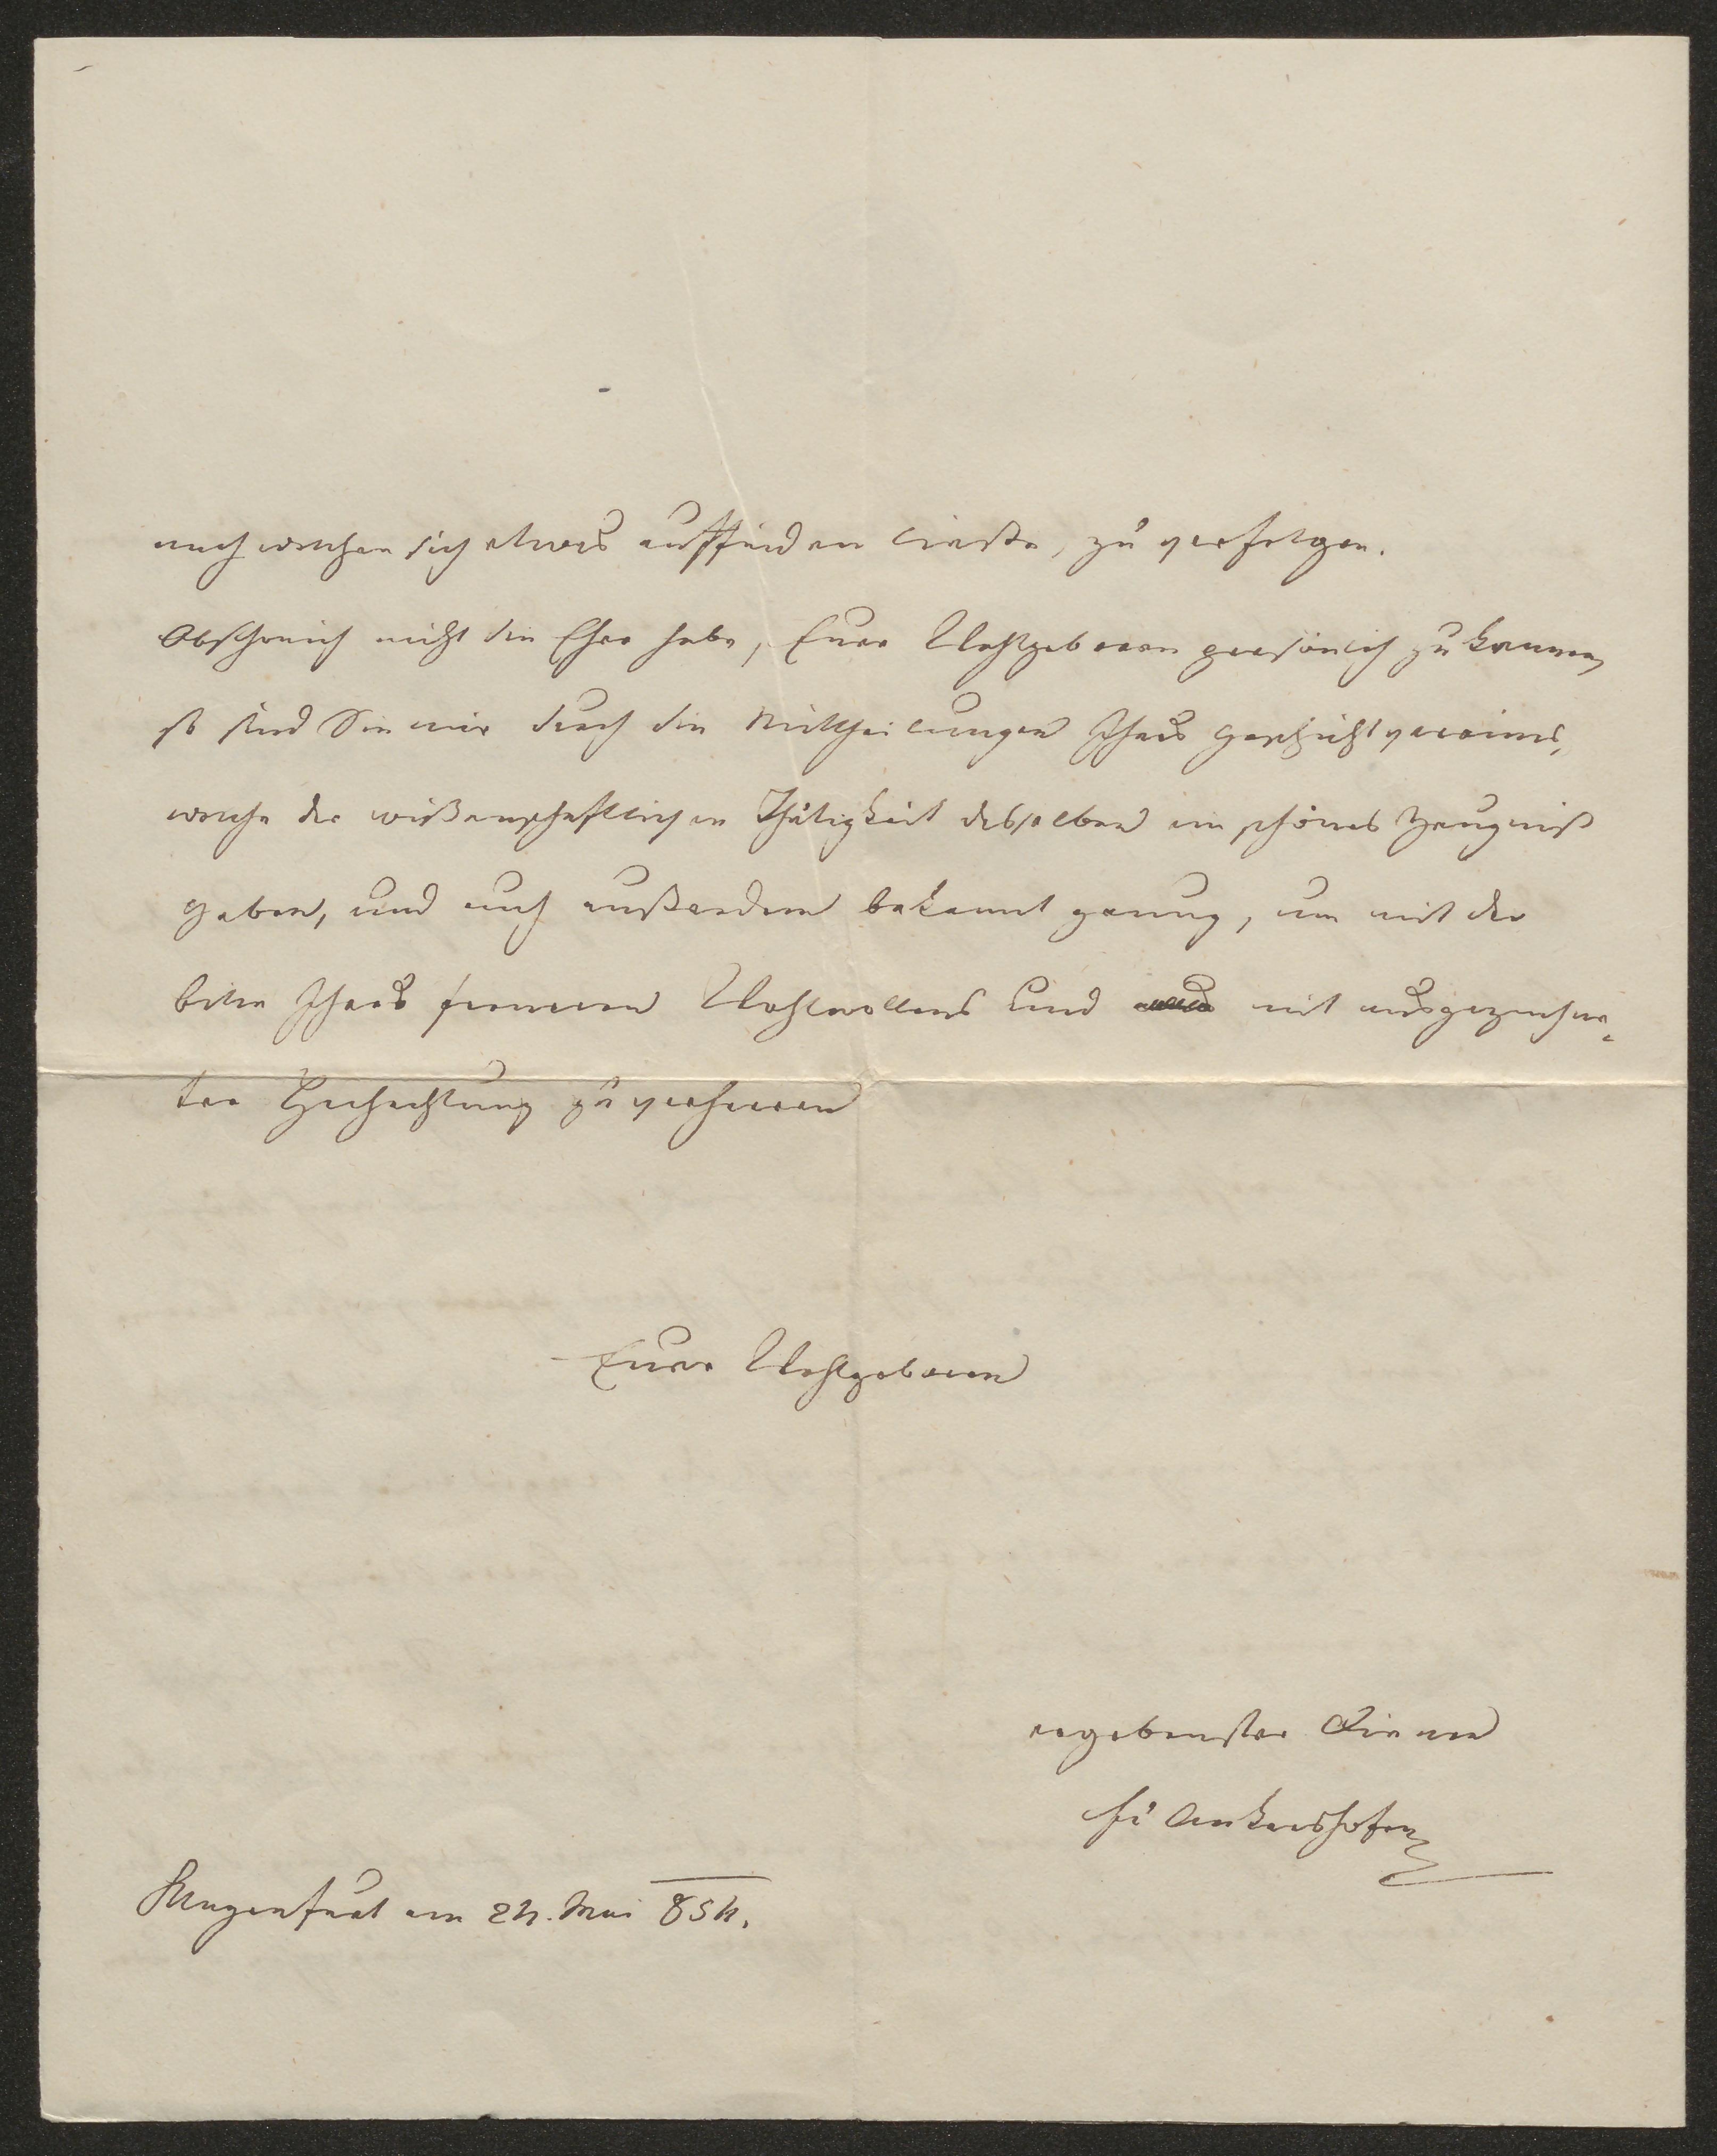 nach welchen sich etwas auffinden ließe, zu verfolgen.
Obschon ich nicht die Ehre habe, Euer Wohlgeboren persönlich zu kennen,
so sind Sie mir durch die Mittheilungen Ihres Geschichtvereines,
welche der wißenschaftlichen Thätigkeit desselben ein schönes Zeugniß
geben, und auch außerdem bekannt genug, um mit der
Bitte Ihres ferneren Wohlwollens und mit ausgezeichne-
ter Hochachtung zu verharren
Euer Wohlgeboren
ergebenster Diener
Ankershofen
Klagenfurt am 24. Mai 854.